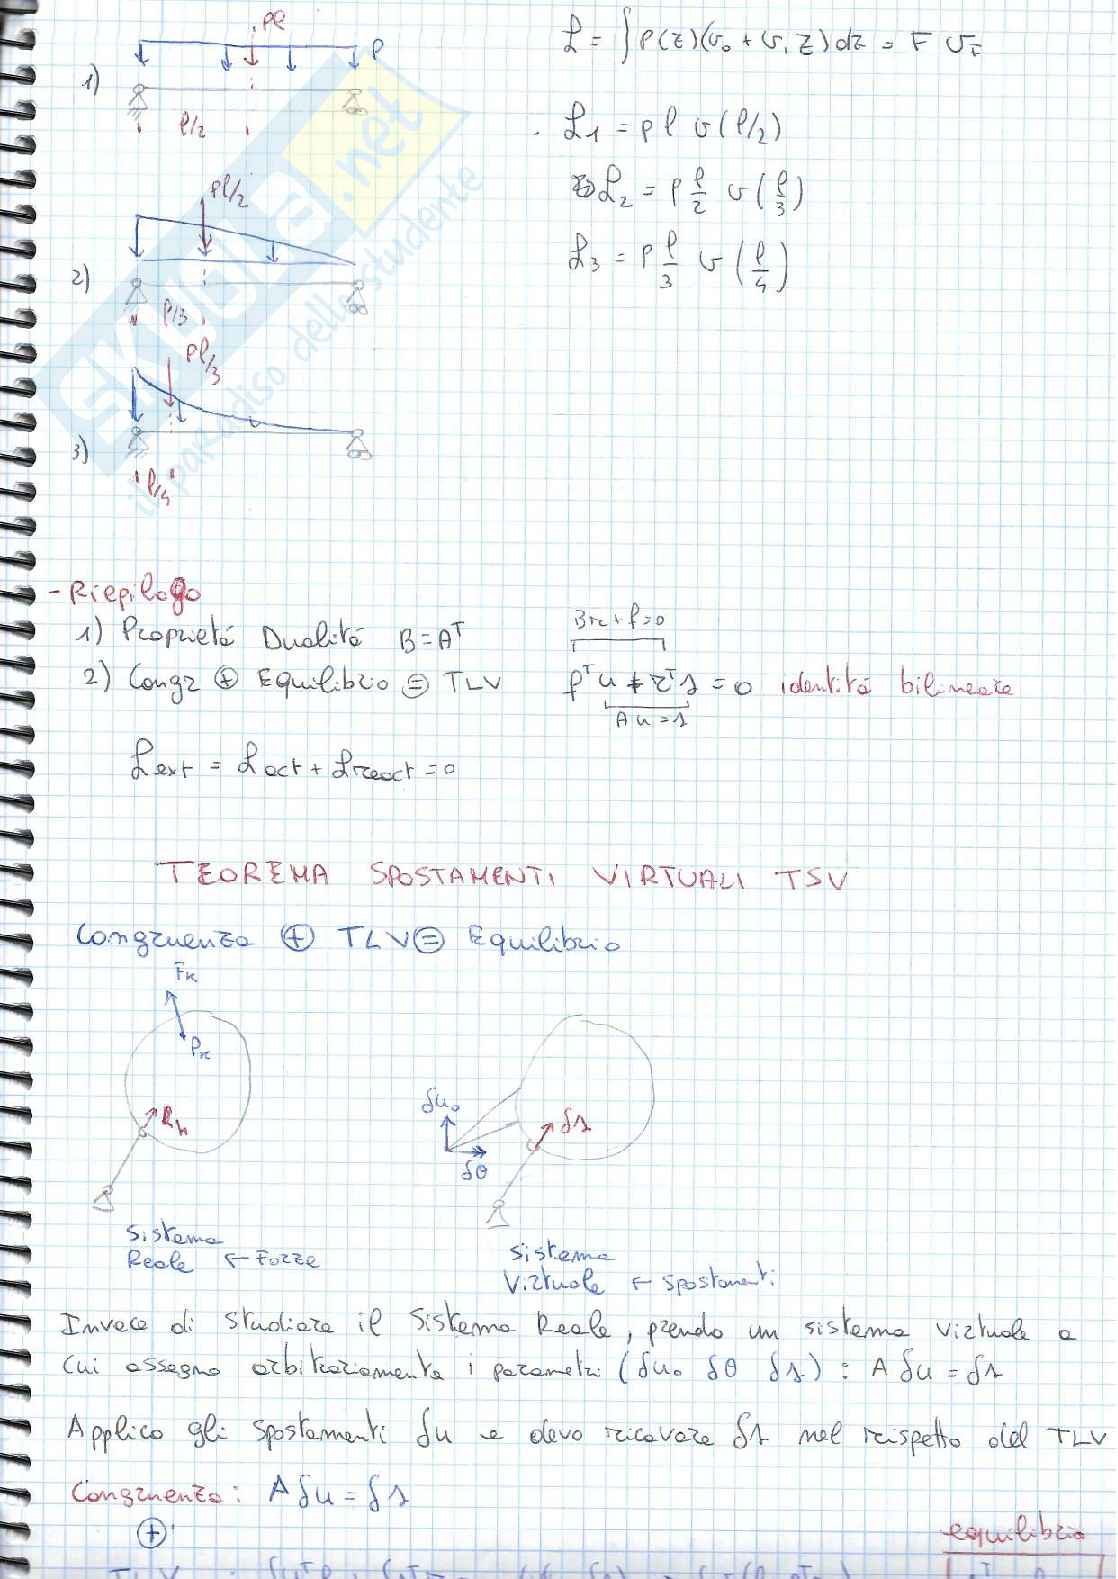 1)
pl
p
l/2
ℒ = ∫ p(z)(v₀ + v₁ z) dz = F v_F
ℒ1 = p l v(l/2)
ℒ₂ = p l/2 v(l/3)
ℒ₃ = p l/3 v(l/4)
2)
pl/2
l/3
3)
pl/3
l/4
SKUOLA.net
il paradiso dello studente
- Riepilogo
1) Proprietá Dualitá B=Aᵀ
Br+f=0
2) Congr ⊕ Equilibrio ⊜ TLV fᵀu + rᵀs = 0 identitá bilineare
Au=s
ℒext = ℒact + ℒreact = 0
TEOREMA SPOSTAMENTI VIRTUALI TSV
Congruenza ⊕ TLV ⊜ Equilibrio
Fk
Pk
Rh
δu₀
δθ
δs
Sistema
Reale ← Forze
Sistema
Virtuale ← spostamenti
Invece di studiare il Sistema Reale, prendo un sistema virtuale a
cui assegno arbitrariamente i parametri (δu₀ δθ δs) : A δu = δs
Applico gli spostamenti δu e devo ricavare δs nel rispetto del TLV
Congruenza: A δu = δs
⊕
equilibrio